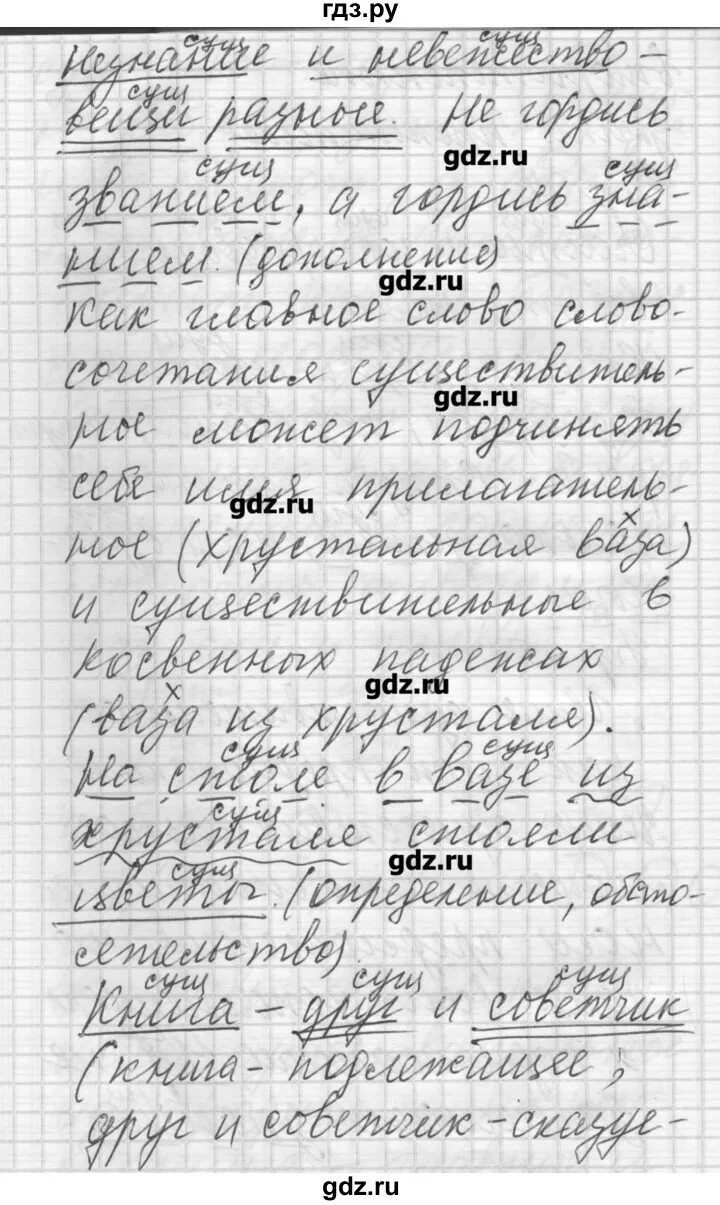 гдз.ру
сущ сущ
незнание и невежество –
сущ
вещи разные. Не гордись
gdz.ru
сущ сущ
званием, а гордись зна-
нием. (дополнение)
gdz.ru
Как главное слово слово-
сочетания существитель-
gdz.ru
ное может подчинять
себе имя прилагатель-
gdz.ru
х
ное (хрустальная ваза)
и существительные в
косвенных падежах
gdz.ru
х
(ваза из хрусталя).
сущ сущ
На столе в вазе из
сущ
хрусталя стояли
gdz.ru
сущ
цветы. (определение, обсто-
ятельство)
сущ сущ сущ
Книга – друг и советчик
(книга – подлежащее,
друг и советчик – сказуе-
gdz.ru